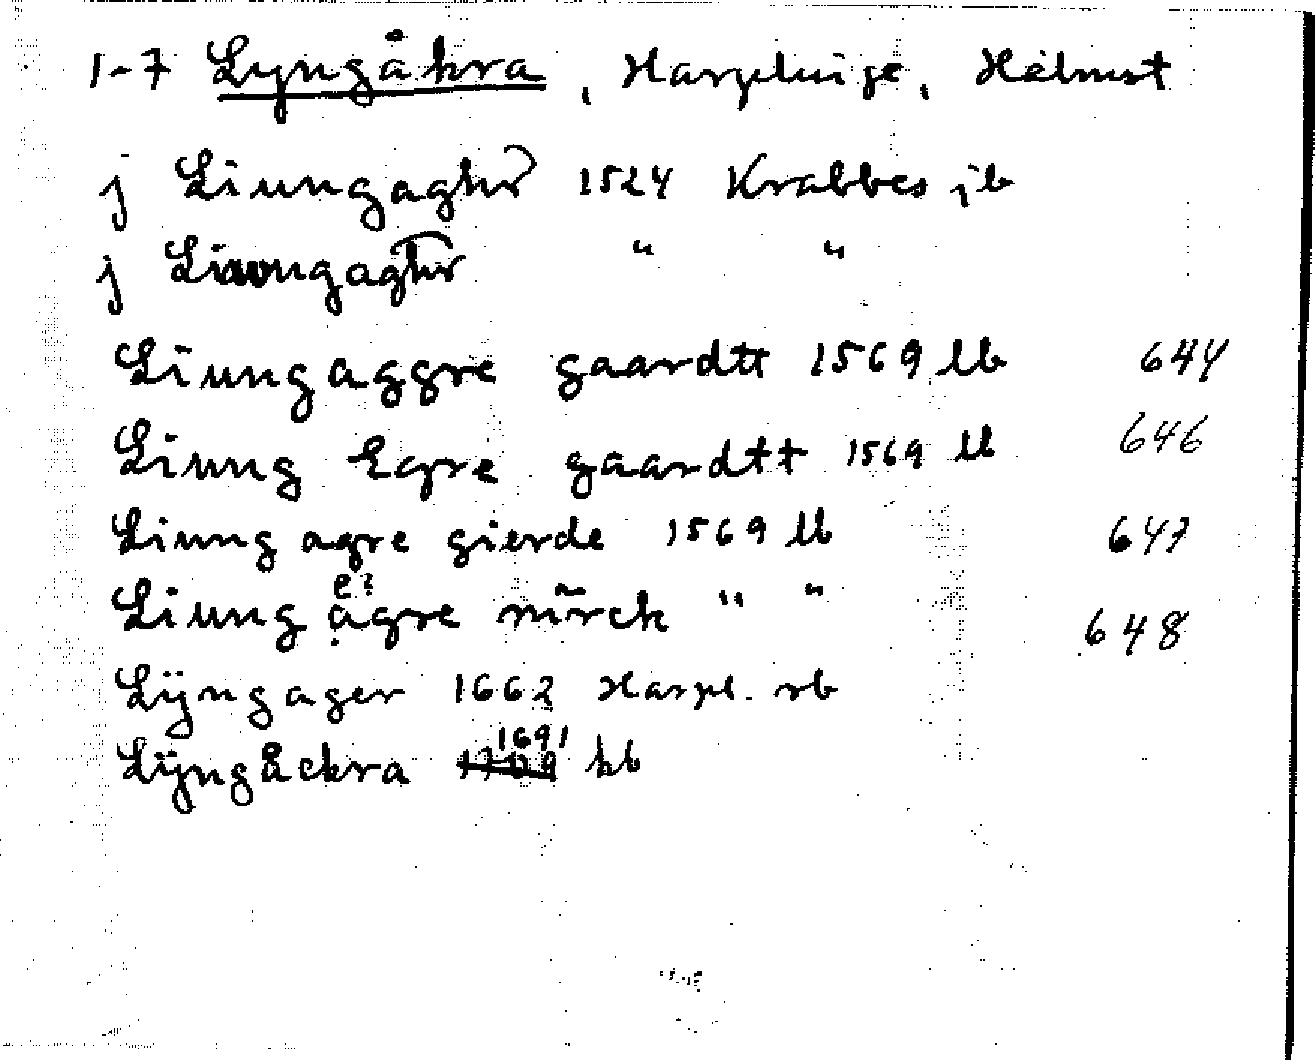 1-7 Lyngåkra, Harplinge, Halmst
j Liungaghr 1524 Krabbes jb
j Liwngaghr " "
Liungaggre gaardtt 1569 lb 644
Liung Egre gaardtt 1569 lb 646
Liung agre gierde 1569 lb 647
e?
Liung ågre mürck " " 648
Lÿngager 1662 Harpl. rb
1691
Lÿngåckra 1709 kb